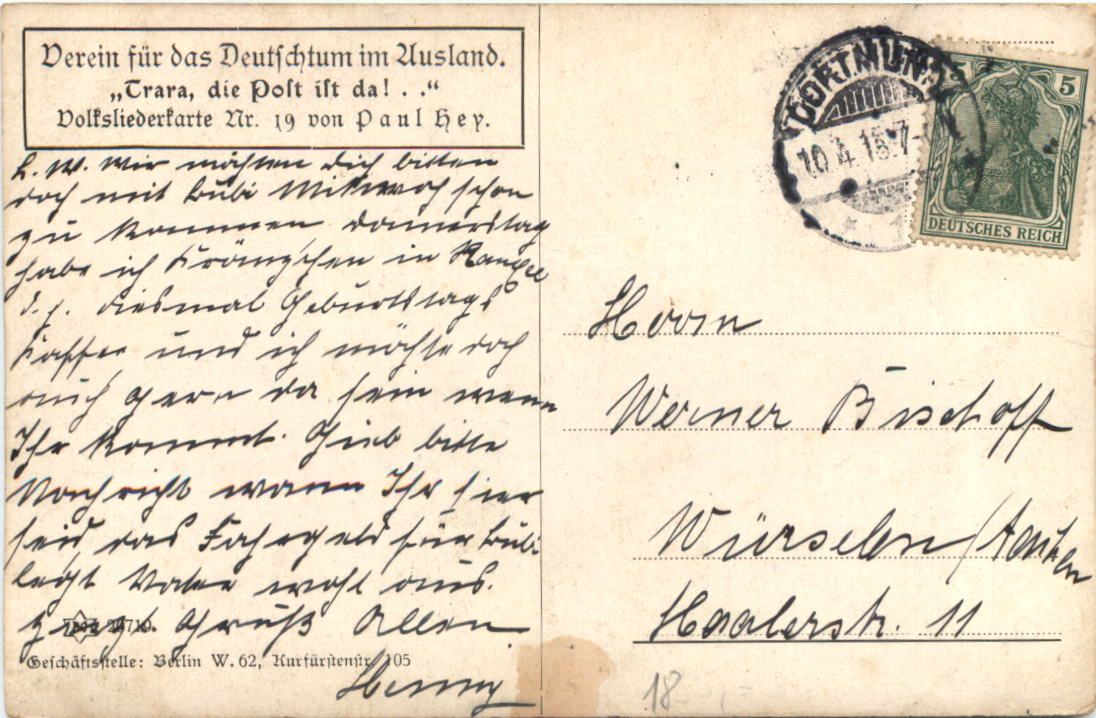 Verein für das Deutschtum im Ausland.
„Trara, die Post ist da! . .“
Volksliederkarte Nr. 19 von Paul Hey.
L. W. Wir möchten dich bitten
doch mit Bubi Mittwoch schon
zu kommen Donnerstag
habe ich Kränzchen in
d. h. diesmal Geburtstags
Kaffee und ich möchte doch
auch gern da sein wenn
Ihr kommt. Gieb bitte
Nachricht wann Ihr hier
seid das Fahrgeld für Bubi
legt Vater wohl aus.
Gruß Allen
Henny
Geschäftsstelle: Berlin W. 62, Kurfürstenstr. 105
DORTMUND
10.4.15.7-
DEUTSCHES REICH
5
Herrn
Werner Bischoff
Würselen/Aachen
Haalerstr. 11
18